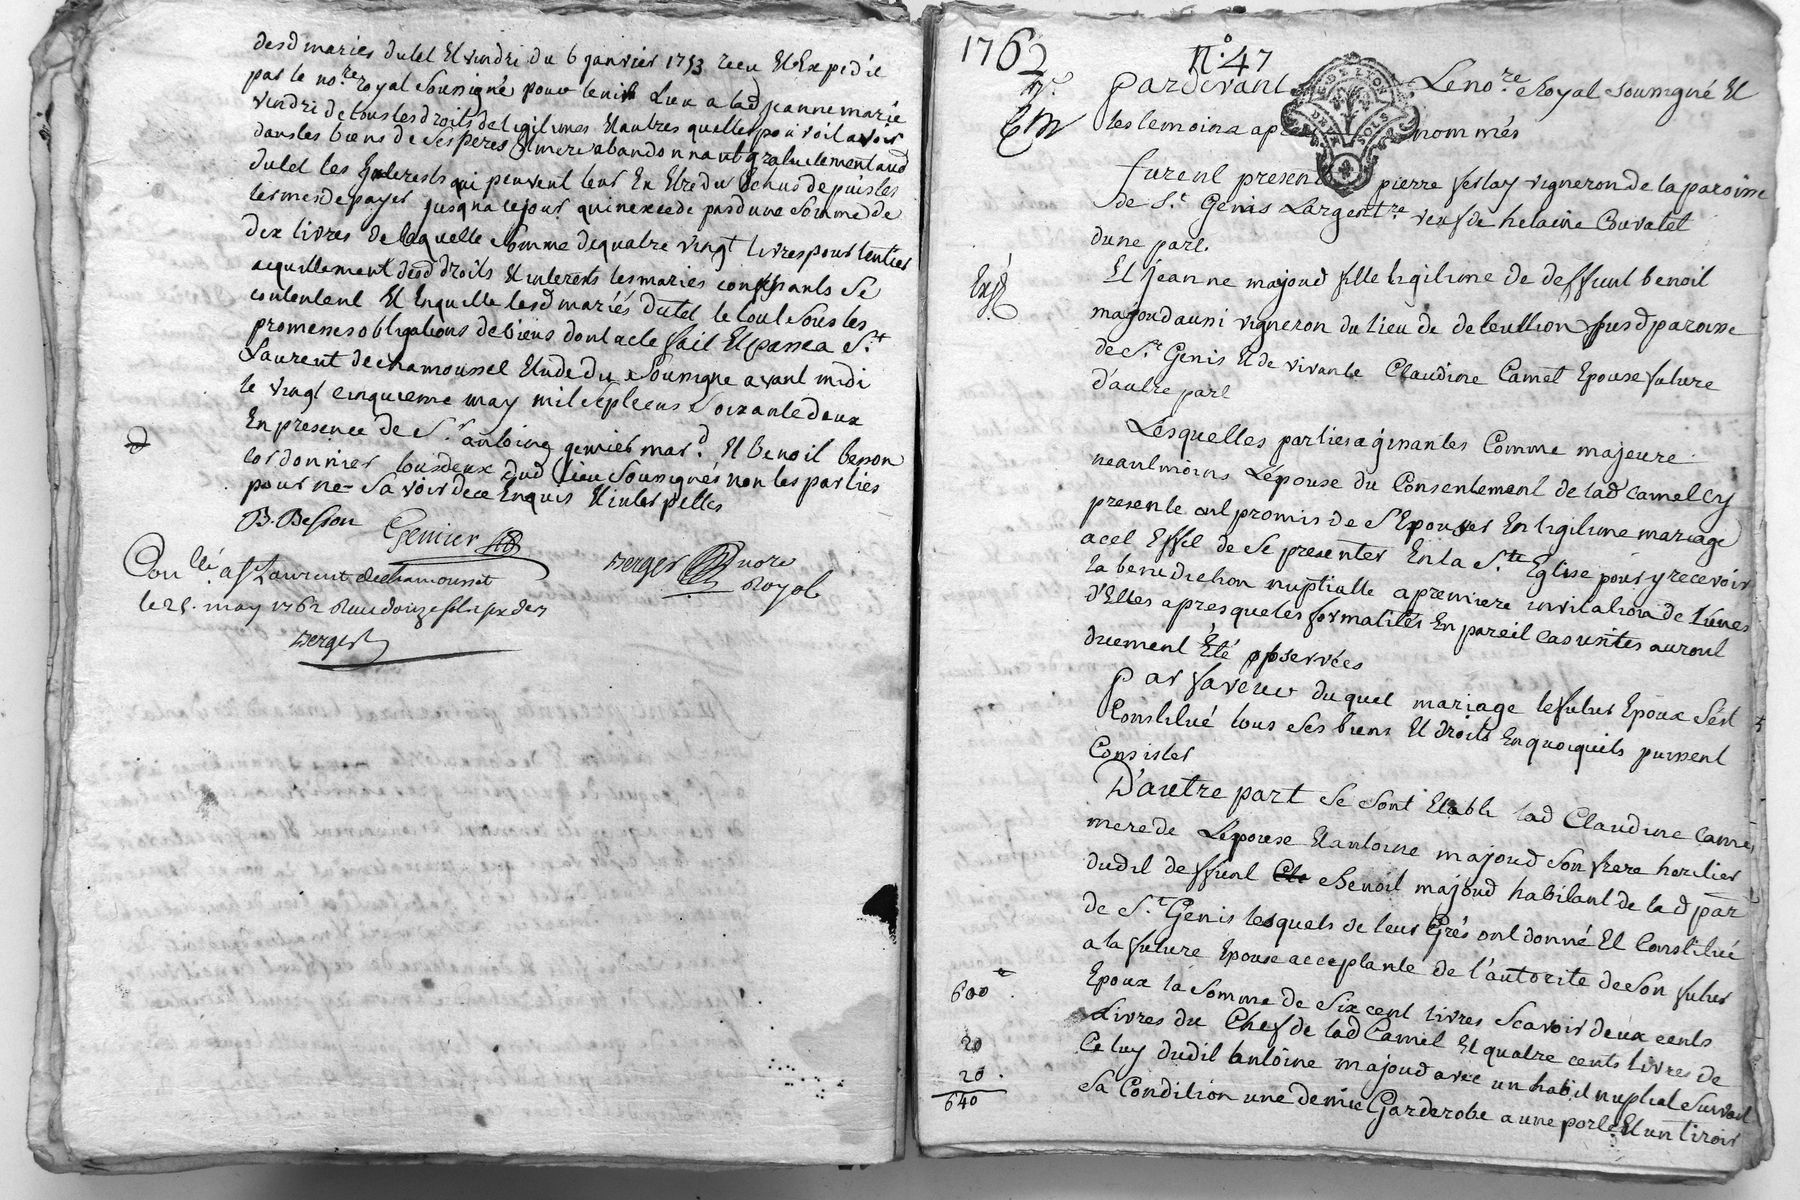 desd mariés dutel et vindri du 6 janvier 1753 recu et Expedié
par le no.re royal soussigné pour tenir Lieu a lad jeanne marie
vindri de tous les droits de legitimes et autres quelle pouvoit avoir
dans les biens de ses peres et mere abandonnant gratuitement aud
dutel les Interests qui peuvent leur En Etre du Echus depuis les
termes de payer jusqua ce jour qui nexcede pas d une somme de
dix livres de laquelle somme de quatre vingt livres pour lentier
acquittement desd droits et interests les mariés se
contentent et Enquitte lesd mariés dutel le tout sous les
promesses obligations de biens dont acte fait et passé a St
Laurent de chamousset Etude du soussigné avant midi
le vingt cinquieme may mil sept cens soixante deux
En presence de Sr antoine genier mard et benoit besson
cordonnier tous deux dud lieu soussignés non les parties
pour ne savoir de ce Enquis et interpelles
B. Besson
Genier
Berger nore
Royal
Conllé a St Laurent de chamousset
le 25 may 1762
Berger
1762
n.° 47
Pardevant Le no.re royal soussigné et
les temoins ap nommés
furent present pierre ferlay vigneron de la paroisse
de St Genis Largentre veuf de helaine Couvatet
dune part.
Exp
Et jeanne majoud fille legitime de deffunt benoit
majoud aussi vigneron du lieu de susd paroisse
de St Genis et de vivante Claudine Camel Epouse future
d'autre part
Lesquelles parties agissantes Comme majeure
neantmoins Lépouse du Consentement de lad Camel cy
presente ont promis de s'Epouser En legitime mariage
a cet Effet de se presenter En la Ste Eglise pour y recevoir
la benediction nuptialle a premiere invitation de l'unes
d'Elles apres que les formalités En pareil cas usités auront
duement Été observées
Par faveur duquel mariage le futur Epoux s'est
Constitué tous ses biens et droits En quoi quils puissent
Consister
D'autre part se sont Etabli lad Claudine Camel
mere de Lépouse et antoine majoud son frere heritier
dudit deffunt benoit majoud habitant de lad par
de St Genis lesquels de leur Grés ont donné et Constitué
a la future Epouse acceptante de l'autorité de son futur
Epoux la somme de six cent livres scavoir deux cents
Livres du Chef de lad Camel et quatre cents livres de
Celuy dudit antoine majoud avec un habit nuptial suivant
sa Condition une demie Garderobe a une porte et un tiroir
600
20
20
640